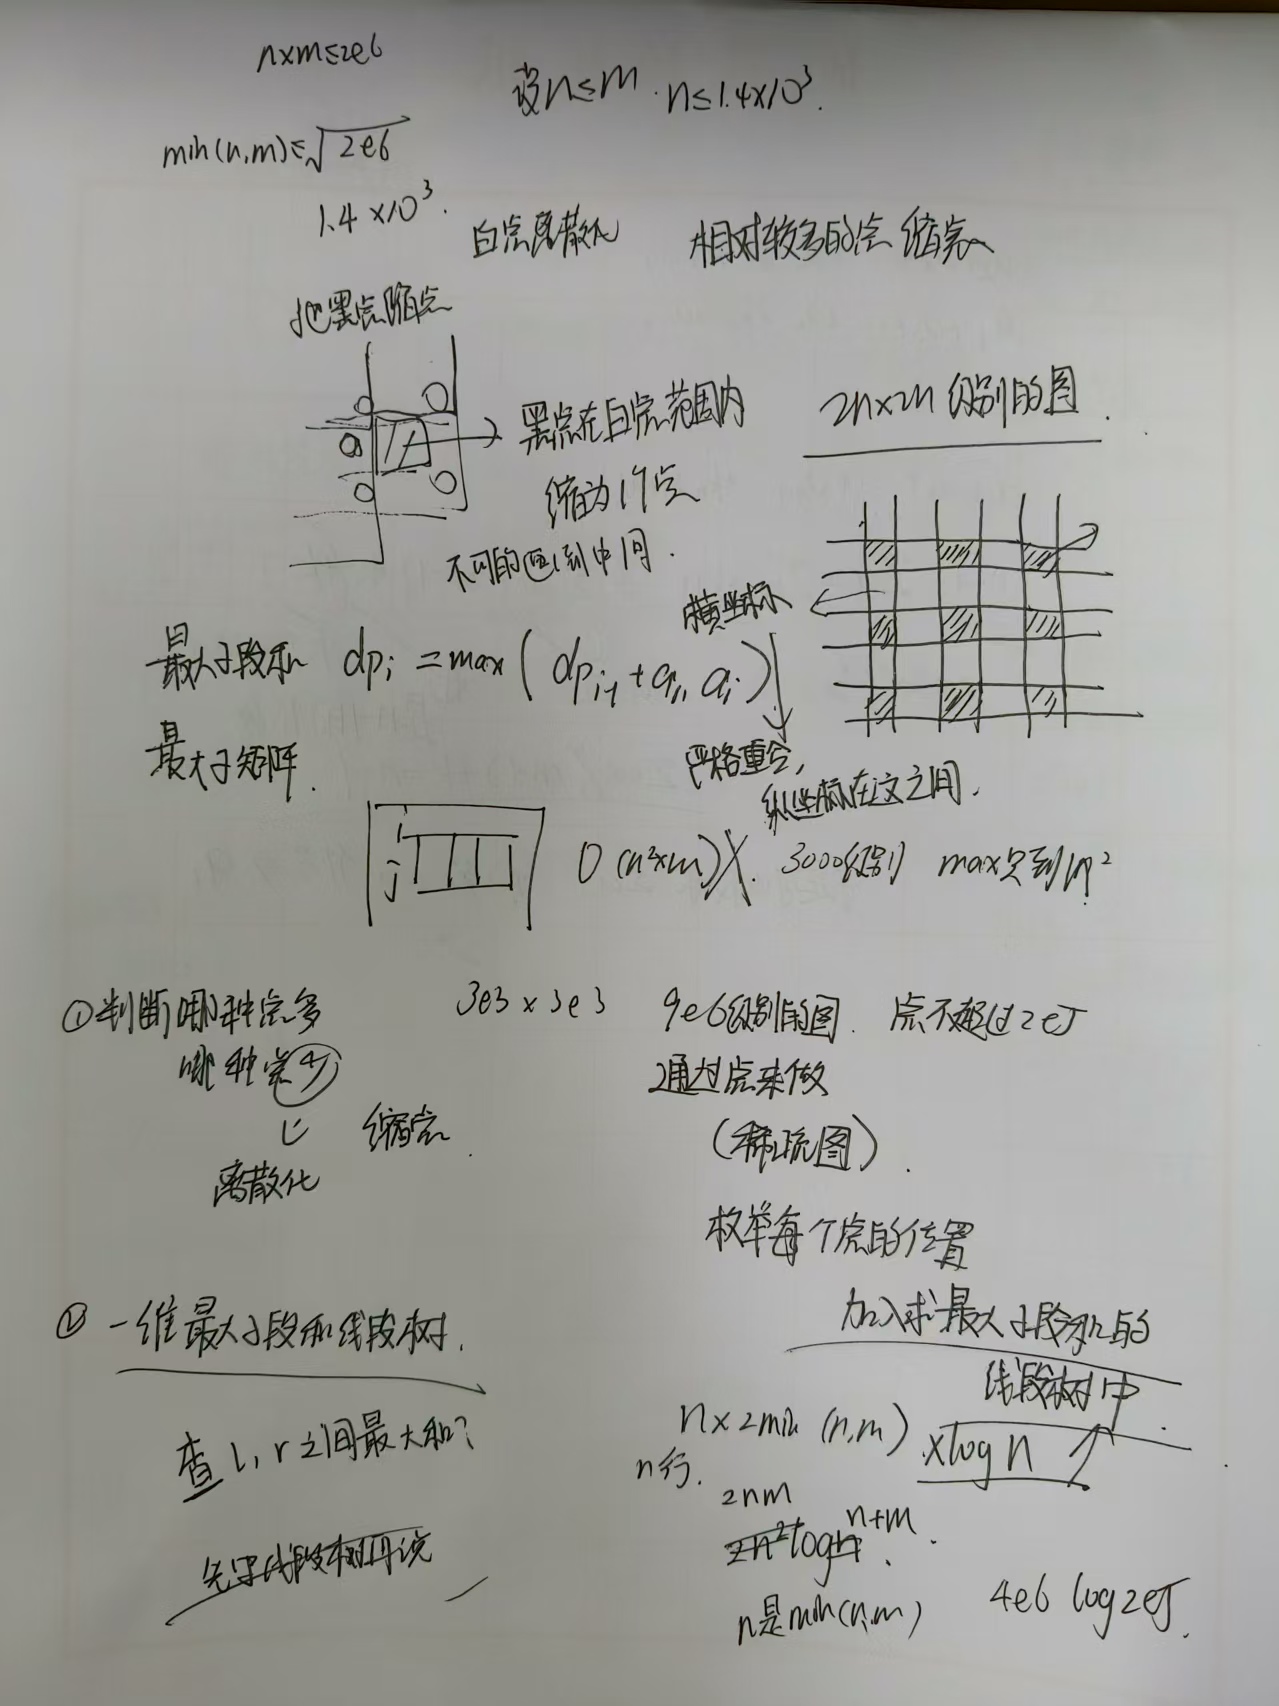 n×m≤2e6
设n≤m. n≤1.4×10³.
min(n,m)≤√2e6
1.4×10³.
白点离散化 相对较多的点 缩点
把黑点缩点
黑点在白点范围内
缩为1个点
不同的区间中间.
2n×2n级别的图.
横坐标
严格重合,
纵坐标在这之间.
最大子段和 dpᵢ=max(dpᵢ₋₁+aᵢ, aᵢ)
最大子矩阵.
O(n²×m)X. 3000级别 max只到n²
①判断哪种点多
哪种点少
离散化
缩点.
3e3×3e3 9e6级别的图. 点不超过2e5
通过点来做
(稀疏图).
枚举每个点的位置
加入求最大子段和的
线段树中.
②一维最大子段和线段树.
查l,r之间最大和?
先写线段树再说
n×2min(n,m)×logn
n行.
2nm
2n²logn n+m.
n是min(n,m)
4e6 log2e5.